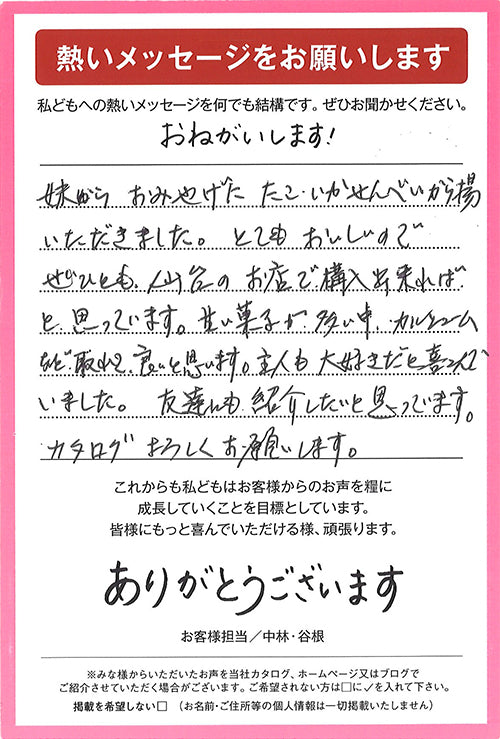 熱いメッセージをお願いします
私どもへの熱いメッセージを何でも結構です。ぜひお聞かせください。
おねがいします!
妹から おみやげに たこ・いかせんべいから揚
いただきました。とても おいしいので
ぜひとも、仙台の お店で 購入出来れば
と 思っています。甘い菓子が 多い中 カルシューム
など 取れて 良いと思います。主人も 大好きだと喜んで
いました。 友達にも 紹介したいと思っています。
カタログ よろしくお願いします。
これからも私どもはお客様からのお声を糧に
成長していくことを目標としています。
皆様にもっと喜んでいただける様、頑張ります。
ありがとうございます
お客様担当／中林・谷根
※みな様からいただいたお声を当社カタログ、ホームページ又はブログで
ご紹介させていただく場合がございます。ご希望されない方は□に✓を入れて下さい。
掲載を希望しない□ （お名前・ご住所等の個人情報は一切掲載いたしません）